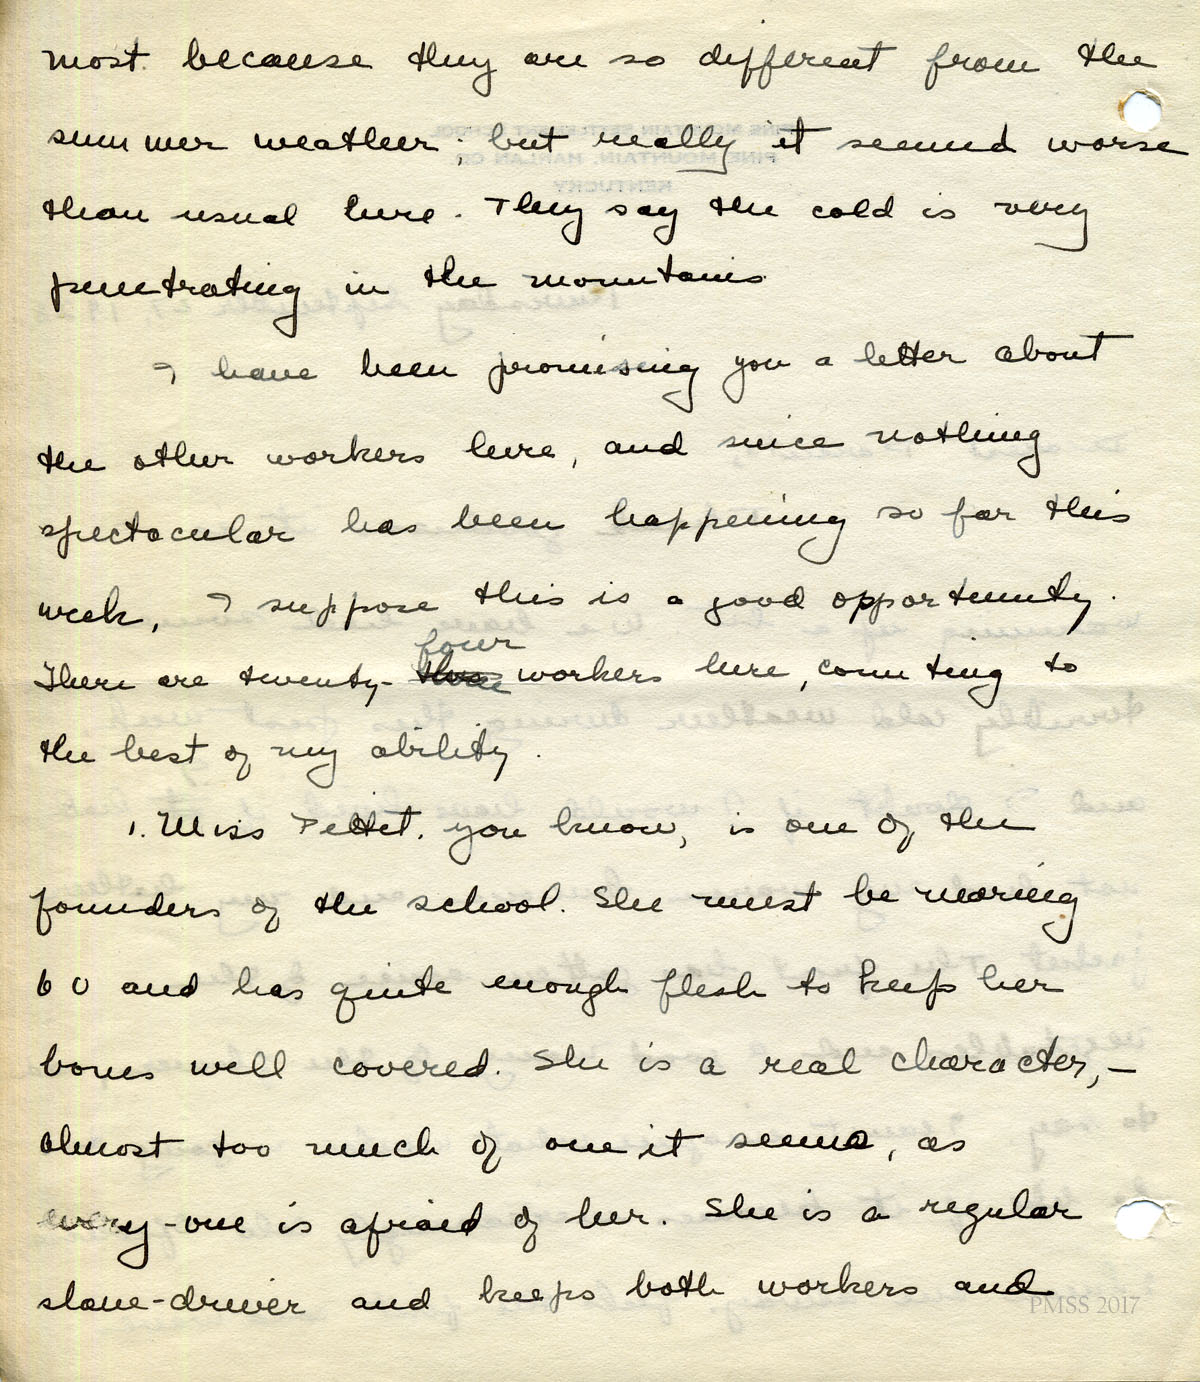 most because they are so different from the
summer weather; but really it seemed worse
than usual here. They say the cold is very
penetrating in the mountains
I have been promising you a letter about
the other workers here, and since nothing
spectacular has been happening so far this
week, I suppose this is a good opportunity.
four
There are twenty-three workers here, counting to
the best of my ability.
1. Miss Pettit, you know, is one of the
founders of the school. She must be nearing
60 and has quite enough flesh to keep her
bones well covered. She is a real character,—
almost too much of one it seems, as
every-one is afraid of her. She is a regular
slave-driver and keeps both workers and
PMSS 2017